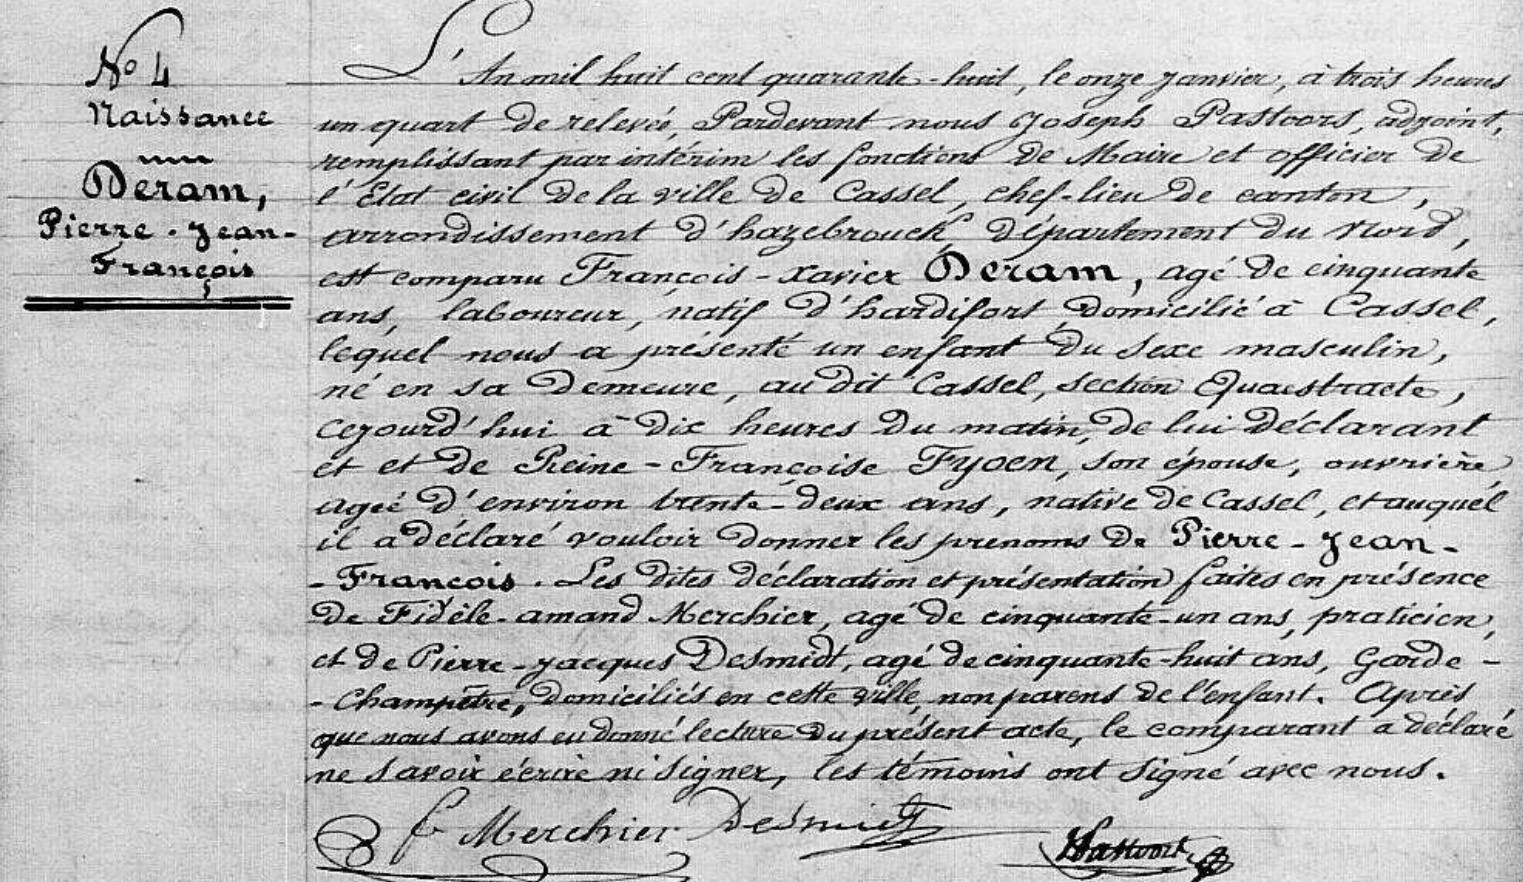 No 4
Naissance
Deram,
Pierre-Jean-
François
L'An mil huit cent quarante-huit, le onze janvier, à trois heures
un quart de relevée, Pardevant nous Joseph Pastoors, adjoint,
remplissant par intérim les fonctions de Maire et officier de
l'Etat civil de la ville de Cassel, chef-lieu de canton,
arrondissement d'hazebrouck, Département du Nord,
est comparu François-Xavier Deram, agé de cinquante
ans, laboureur, natif d'hardifort domicilié à Cassel,
lequel nous a présenté un enfant du sexe masculin,
né en sa Demeure, au dit Cassel, section Quaestracte,
cejourd'hui à dix heures du matin, de lui Déclarant
et et de Reine-Françoise Fyoen, son épouse, ouvrière
agée d'environ trente-deux ans, native de Cassel, et auquel
il a déclaré vouloir donner les prenoms de Pierre-Jean-
-Francois. Les dites déclaration et présentation faites en présence
de Fidèle-amand Merchier, agé de cinquante-un ans, praticien,
et de Pierre-Jacques Desmidt, agé de cinquante-huit ans, Garde-
-Champêtre, domiciliés en cette ville, non parens de l'enfant. Après
que nous avons eu donné lecture du présent acte, le comparant a déclaré
ne savoir écrire ni signer, les témoins ont signé avec nous.
f Merchier Desmidt